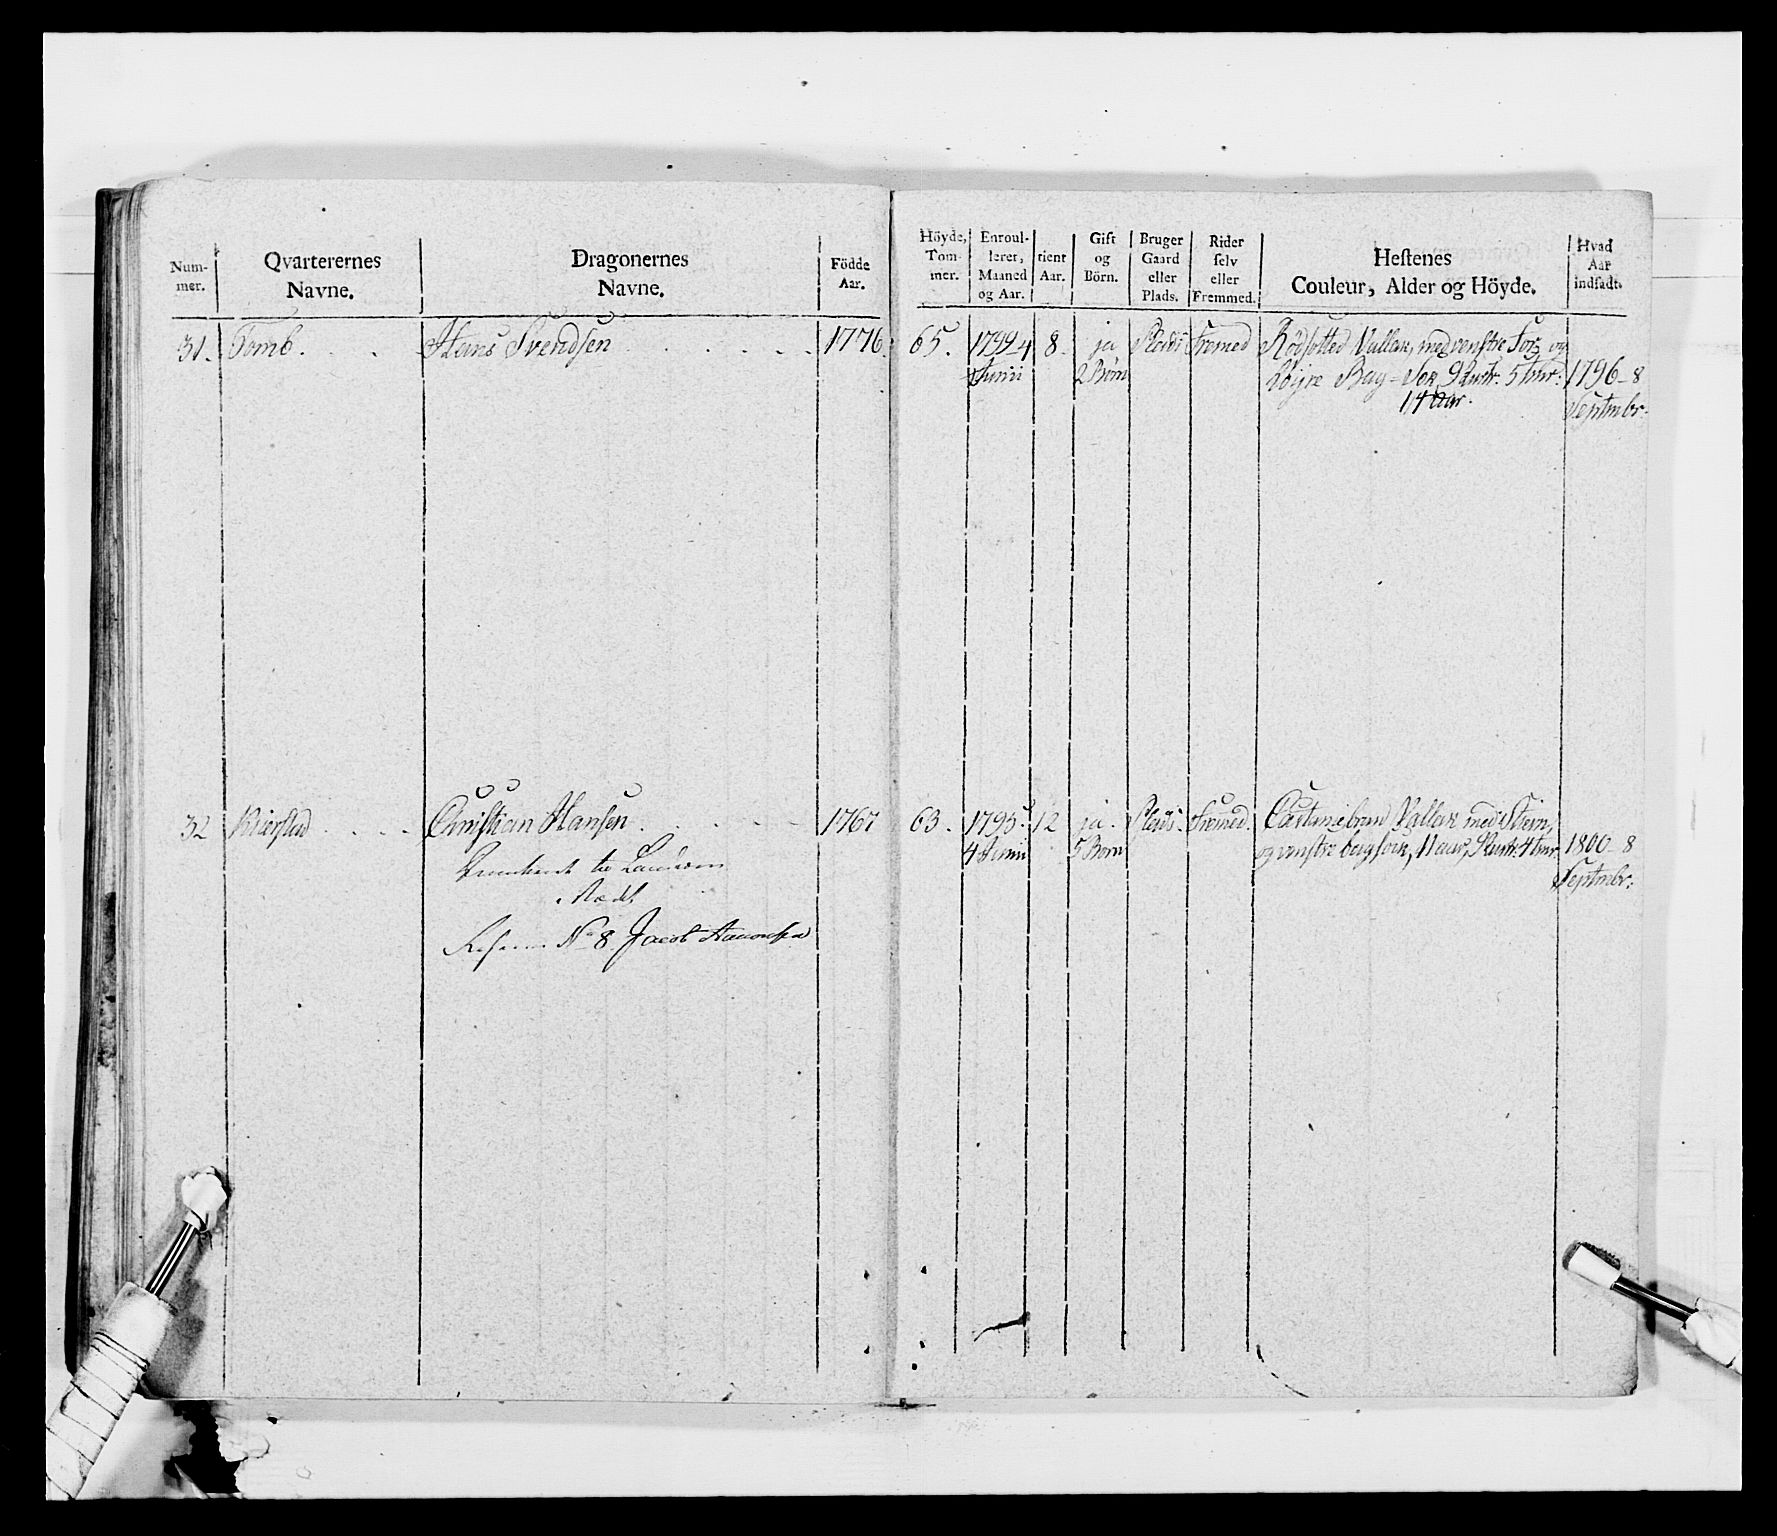 Num-
mer.
Qvarterernes
Navne.
Dragonernes
Navne.
Födde
Aar.
Höyde,
Tom-
mer.
Enroul-
leret,
Maaned
og Aar.
tient
Aar.
Gift
og
Börn.
Bruger
Gaard
eller
Plads.
Rider
selv
eller
Fremmed.
Hestenes
Couleur, Alder og Höyde.
Hvad
Aar
indsadt.
31. Tomb. Hans Svendsen 1776. 65. 1799 4 8. ja Plads Fremed Rödsotted Vallak, med venstre For og
Junii 2 Börn Höyre Bag- 9 5 1796 - 8
14 Aar. Septmbr:
32 Kierstad Christian Hansen 1767 63. 1795. 12 ja. Plads. Fremed. Castaniebrun Vallak med Stiern,
4 Junii 5 Börn og venstre bagfod, 11 aar, 4 1800 - 8
Septmbr:
No 8. Jacob